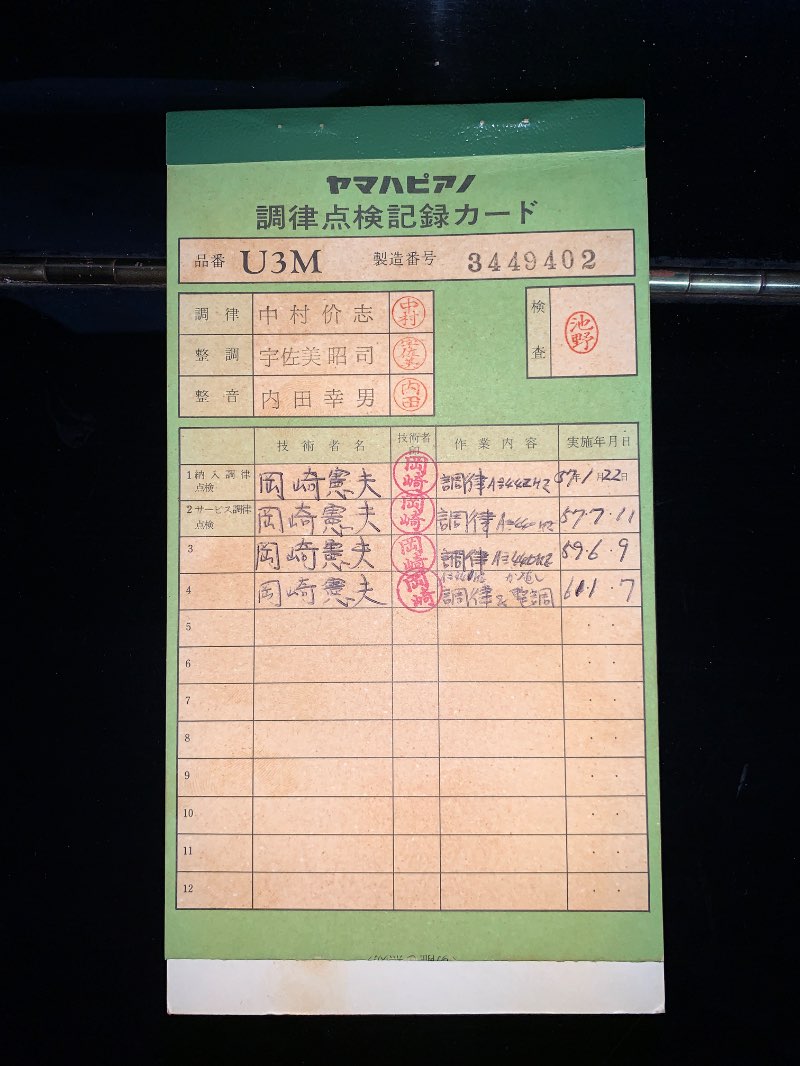 ヤマハピアノ
調律点検記録カード
品番 U3M 製造番号 3449402
調律 中村价志 中村
整調 宇佐美昭司 宇佐美
整音 内田幸男 内田
検査 池野
技術者名 技術者印 作業内容 実施年月日
1 納入調律点検 岡崎憲夫 岡崎 調律 A=442HZ 57年1月22日
2 サービス調律点検 岡崎憲夫 岡崎 調律 57・7・11
3 岡崎憲夫 岡崎 調律 59・6・9
4 岡崎憲夫 岡崎 調律 整調 61・1・7
5
6
7
8
9
10
11
12